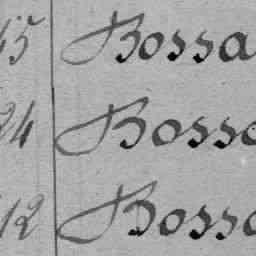 15 Bossa
24 Bosso
12 Bosso